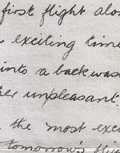 first flight alon
exciting time
into a backwas
unpleasant.
the most exci
tomorrow's